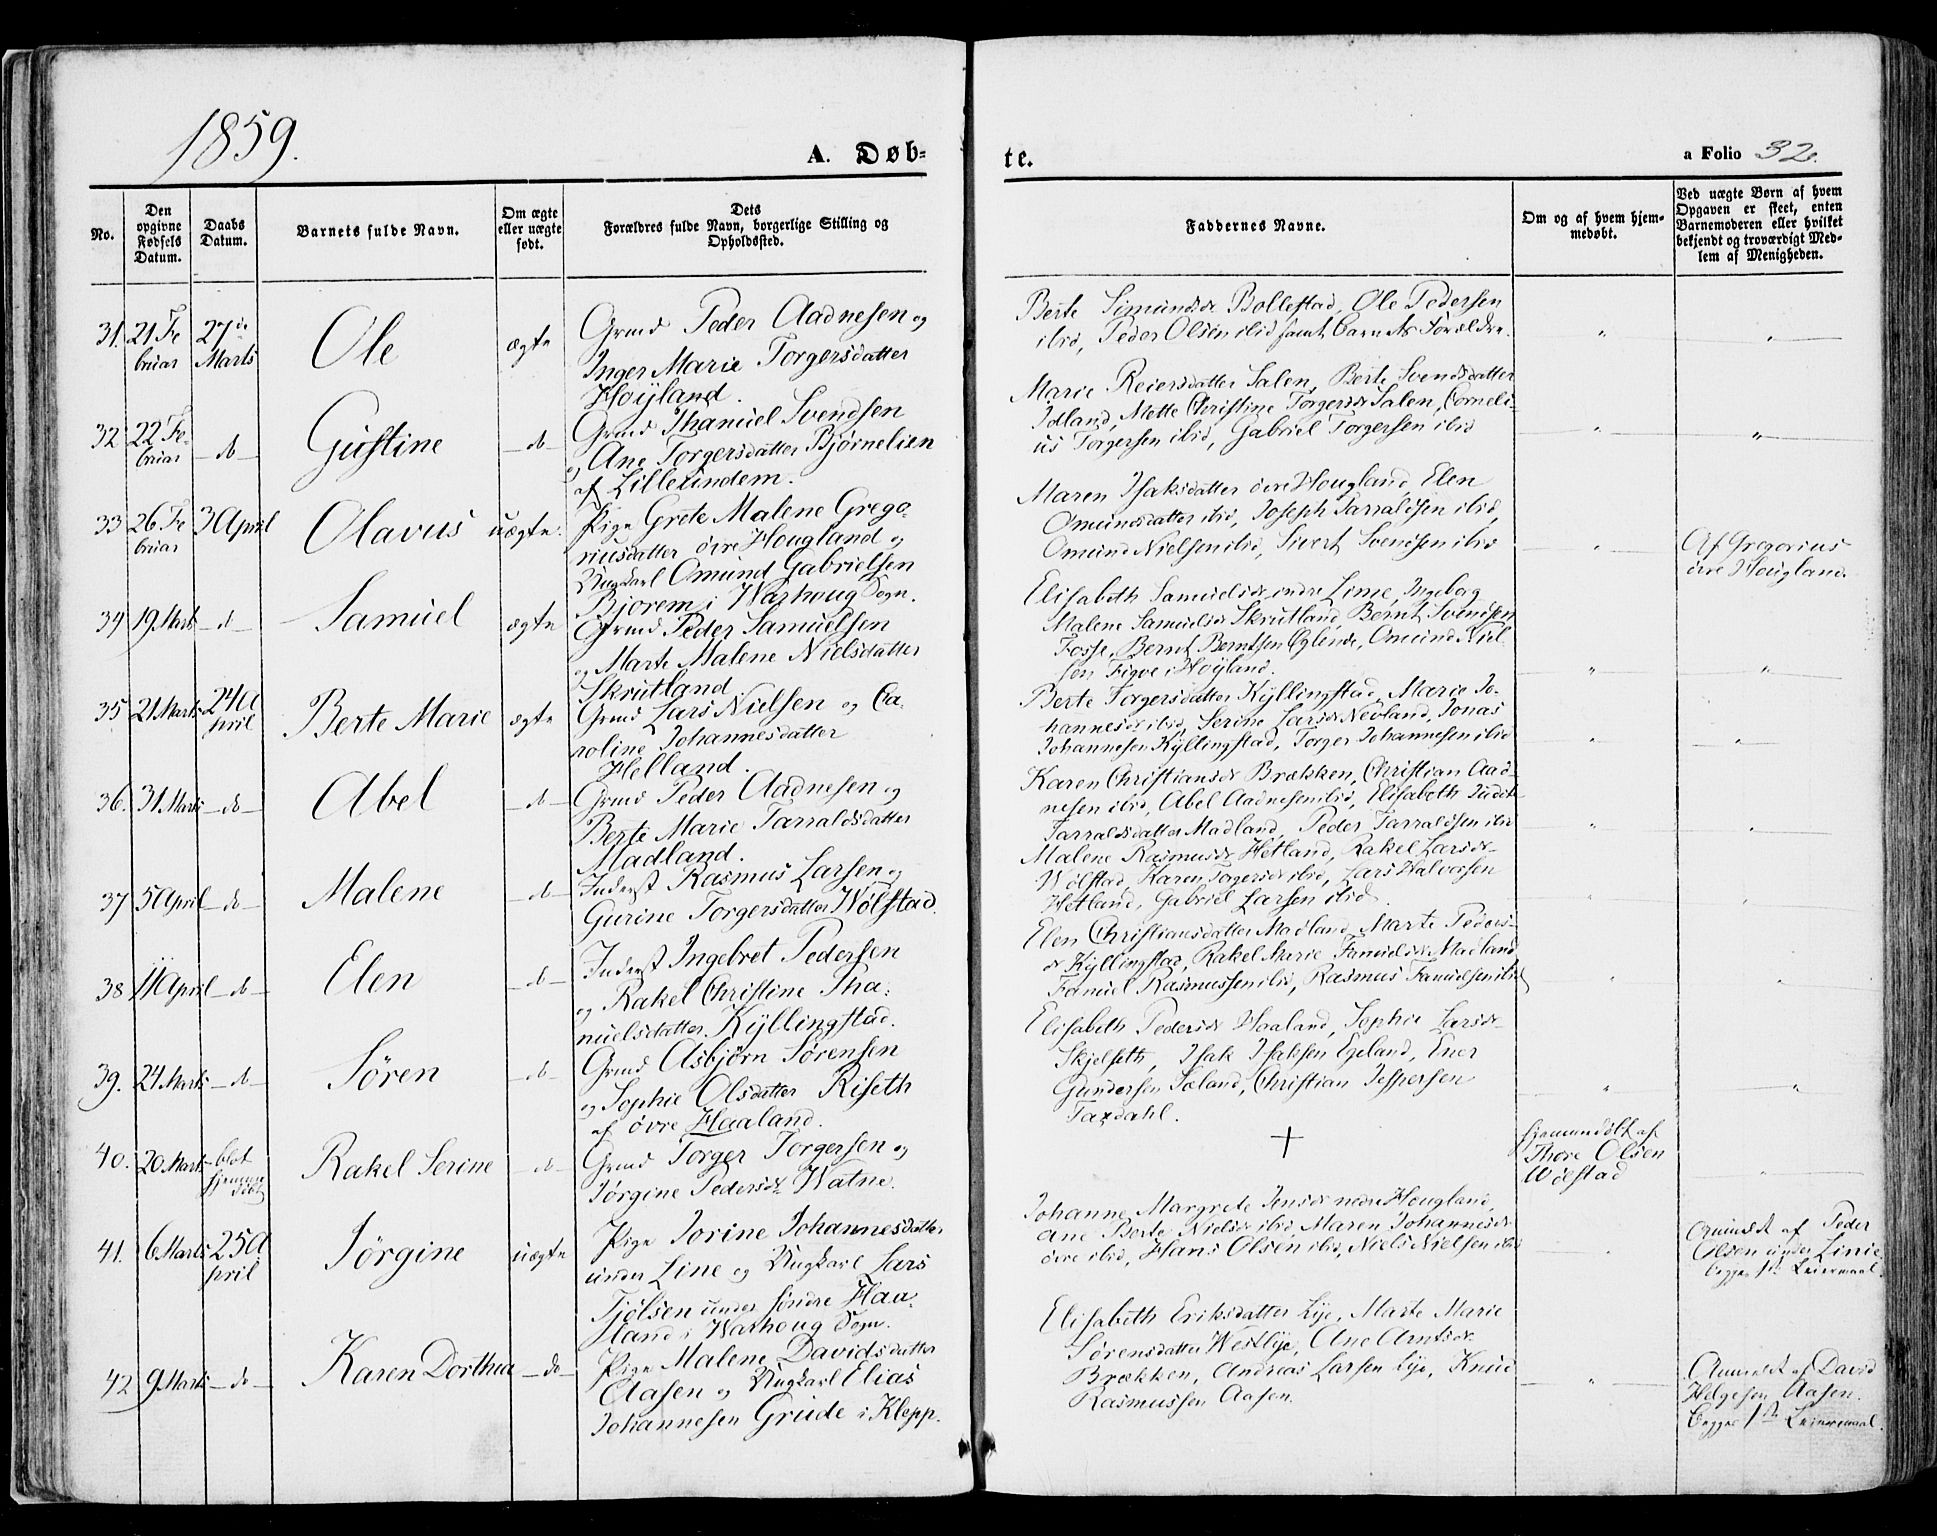 1859.
A. Døb-
te.
a Folio 32.
No.
Den opgivne Fødsels Datum.
Daabs Datum.
Barnets fulde Navn.
Om ægte eller uægte født.
Dets Forældres fulde Navn, borgerlige Stilling og Opholdssted.
Faddernes Navne.
Om og af hvem hjem-
medøbt.
Ved uægte Børn af hvem
Opgaven er skeet, enten
Barnemoderen eller hvilket
bekjendt og troværdigt Med-
lem af Menigheden.
31. 21 Fe
bruar
27de
Marts
Ole
ægte
Grmd Peder Aadnesen og
Inger Marie Torgersdatter
Høyland.
Berte Simundsdr Bollestad, Ole Pedersen
ibid, Peder Olsen ibid samt Barnets Forældre.
32 22 Fe-
bruar
do
Gustine
do
Grmd Thamuel Svendsen
og Ane Torgersdatter Bjørnelien
af Lilleundem.
Marie Reiersdatter Salen, Berte Svendsdatter
Idland, Mette Christine Torgersdr Salen, Corneli-
us Torgersen ibid, Gabriel Torgersen ibid
33 26 Fe
bruar
3 April
Olavus
uægte
Pige Grete Malene Grego-
riusdatter øvre Hougland og
Ungkarl Omund Gabrielsen
Bjorem i Warhoug Sogn.
Maren Isaksdatter øvre Hougland, Elen
Omundsdatter ibid, Joseph Tarraldsen ibid,
Omund Nielsen ibid, Sivert Svendsen ibid
Af Gregorius
øvre Hougland.
34 19 Mart
d
Samuel
ægte
Grmd Peder Samuelsen
og Marte Malene Nielsdatter
Skrutland.
Elisabeth Samuelsdr indre Lime, Ingeborg
Malene Samuelsdr Skrutland, Bernt Svendsen
Fosse, Bernt Berntsen Øglende, Omund Niel
sen Figve i Høyland.
35 21 Marts
24 A
pril
Berte Marie
ægte
Grmd Lars Nielsen og Ca-
roline Johannesdatter
Helland.
Berte Torgersdatter Kyllingstad, Marie Jo-
hannesdr ibid, Serine Larsdr Nevland, Jonas
Johannesen Kyllingstad, Torger Johannesen ibid
36. 31 Marts
do
Abel
do
Grmd Peder Aadnesen og
Berte Marie Tarraldsdatter
Madland.
Karen Christiansdr Brækken, Christian Aad-
nesen ibid, Abel Aadnesen ibid, Elisabeth Judit
Tarraldsdatter Madland, Peder Tarraldsen ibid
37 5 April
do
Malene
do
Inderst Rasmus Larsen og
Gurine Torgersdatter Wølstad.
Malene Rasmusdr Hetland, Rakel Larsdr
Wølstad, Karen Torgersdr ibid, Lars Halvorsen
Hetland, Gabriel Larsen ibid.
38 11 April
do
Elen
do
Inderst Ingebret Pedersen
og Rakel Christine Tha-
nuelsdatter Kyllingstad.
Elen Christiansdatter Madland, Marte Peders-
dr Kyllingstad, Rakel Marie Fanuelsdr Madland
Fanuel Rasmussen ibid, Rasmus Fanuelsen ibid
39. 24 Marts
do
Søren
do
Grmd Asbjørn Sørensen
og Sophie Olsdatter Riseth
af øvre Haaland.
Elisabeth Pedersdr Haaland, Sophie Larsdr
Skjelseth, Isak Isaksen Egeland, Ener
Gundersen Sæland, Christian Jespersen
Taxdahl.
40. 20 Marts
blot
hjemme
døbt
Rakel Serine
do
Grmd Torger Torgersen og
Jørgine Pedersdr Watne.
+
hjemmedøbt af
Thore Olsen
Wølstad
41. 6 Marts
25 A
pril
Jørgine
uægte
Pige Jorine Johannesdatter
under Line og Ungkarl Lars
Tjølsen under søndre Haa-
land i Warhoug Sogn.
Johanne Margrete Jensdr nedre Hougland,
Ane Berte Nielsdr ibid, Maren Johannesdr
øvre ibid, Hans Olsen ibid, Niels Nielsen ibid
Anmeldt af Peder
Olsen under Linie
begges 1ste Leiermaal.
42 9 Marts
do
Karen Dorthea
do
Pige Malene Davidsdatter
Aasen og Ungkarl Elias
Johannesen Grude i Klepp.
Elisabeth Eriksdatter Lye, Marte Marie
Sørensdatter Westlye, Ane Arntsdr
Brækken, Andreas Larsen Lye, Knud
Rasmussen Aasen.
Anmeldt af David
Helgesen Aasen.
begges 1ste Leiermaal.